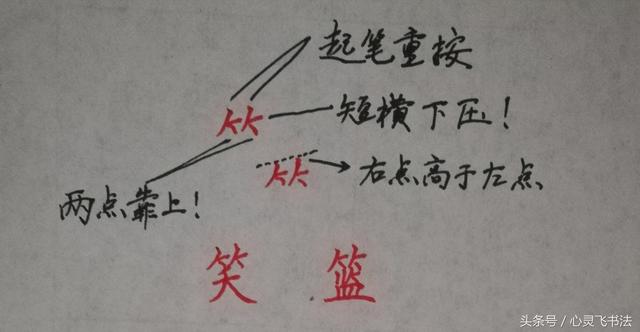 起笔重按
𥫗
短横下压！
𥫗
右点高于左点
两点靠上！
笑 篮
头条号／心灵飞书法